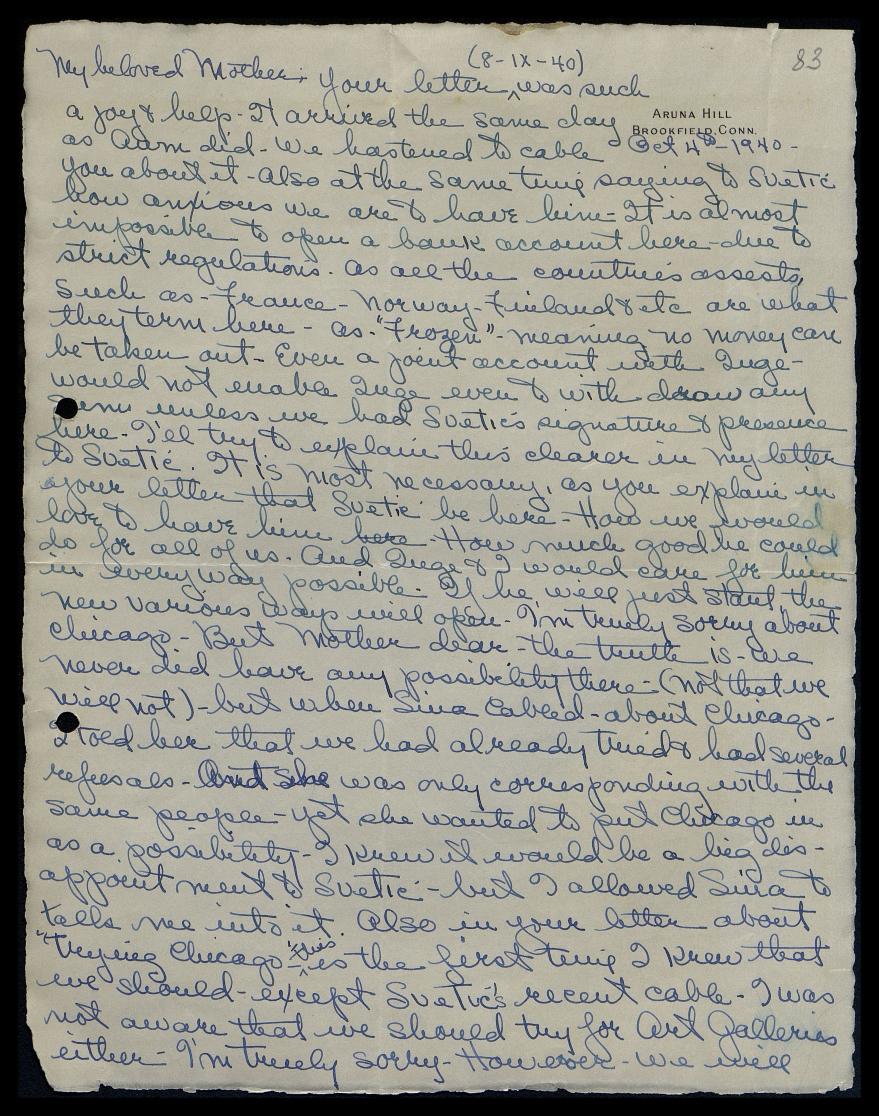 83
(8-IX-40)
My beloved Mother; your letter ^ was such
a joy & help - It arrived the same day
ARUNA HILL
BROOKFIELD, CONN.
as Aum did - We hastened to cable Oct 4th - 1940 -
you about it - Also at the same time saying to Svetic
how anxious we are to have him = It is almost
impossible to open a bank account here - due to
strict regulations. As all the countries assests,
such as - France - Norway - Finland & etc are what
they term here - as - "Frozen" - meaning no money can
be taken out - Even a joint account with Inge -
would not enable Inge even to with draw any
unless we had Svetic's signature & presence
here - I'll try to explain this clearer in my letter
to Svetic. It is most necessary, as you explain in
your letter - that Svetic be here - How we would
love to have him here - How much good he could
do for all of us. And Inge & I would care for him
in every way possible - If he will just stand, the
new various ways will open - I'm truely sorry about
Chicago - But Mother dear - the truth is - we
never did have any possibility there - (not that we
will not) - but when Sina Cabled - about Chicago -
I told her that we had already tried & had several
refusals - And she was only corresponding with the
same people - yet she wanted to put Chicago in
as a possibility - I knew it would be a big dis-
appointment to Svetic - but I allowed Sina to
talk me into it. Also in your letter about
"trying Chicago" - ^ this is the first time I knew that
we should - except Svetic's recent cable - I was
not aware that we should try for Art Galleries
either - I'm truely sorry - However - we will